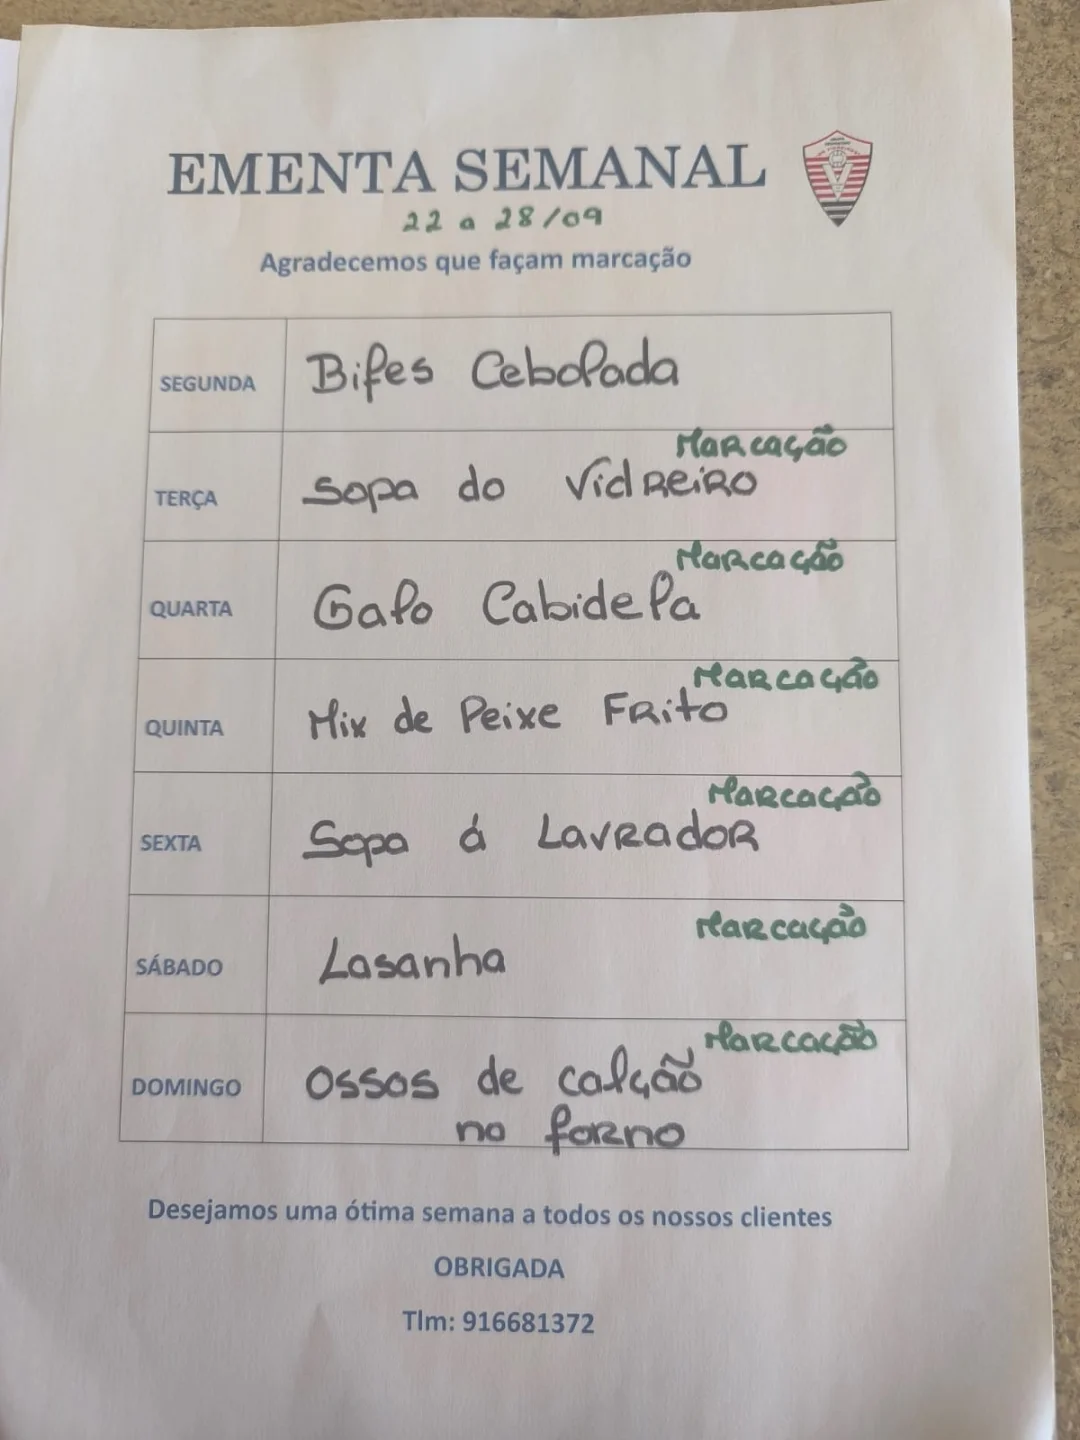 EMENTA SEMANAL
22 a 28/09
Agradecemos que façam marcação
SEGUNDA
Bifes Cebolada
Marcação
TERÇA
Sopa do Vidreiro
Marcação
QUARTA
Galo Cabidela
Marcação
QUINTA
Mix de Peixe Frito
Marcação
SEXTA
Sopa á Lavrador
Marcação
SÁBADO
Lasanha
Marcação
DOMINGO
Ossos de calção
no forno
Desejamos uma ótima semana a todos os nossos clientes
OBRIGADA
Tlm: 916681372